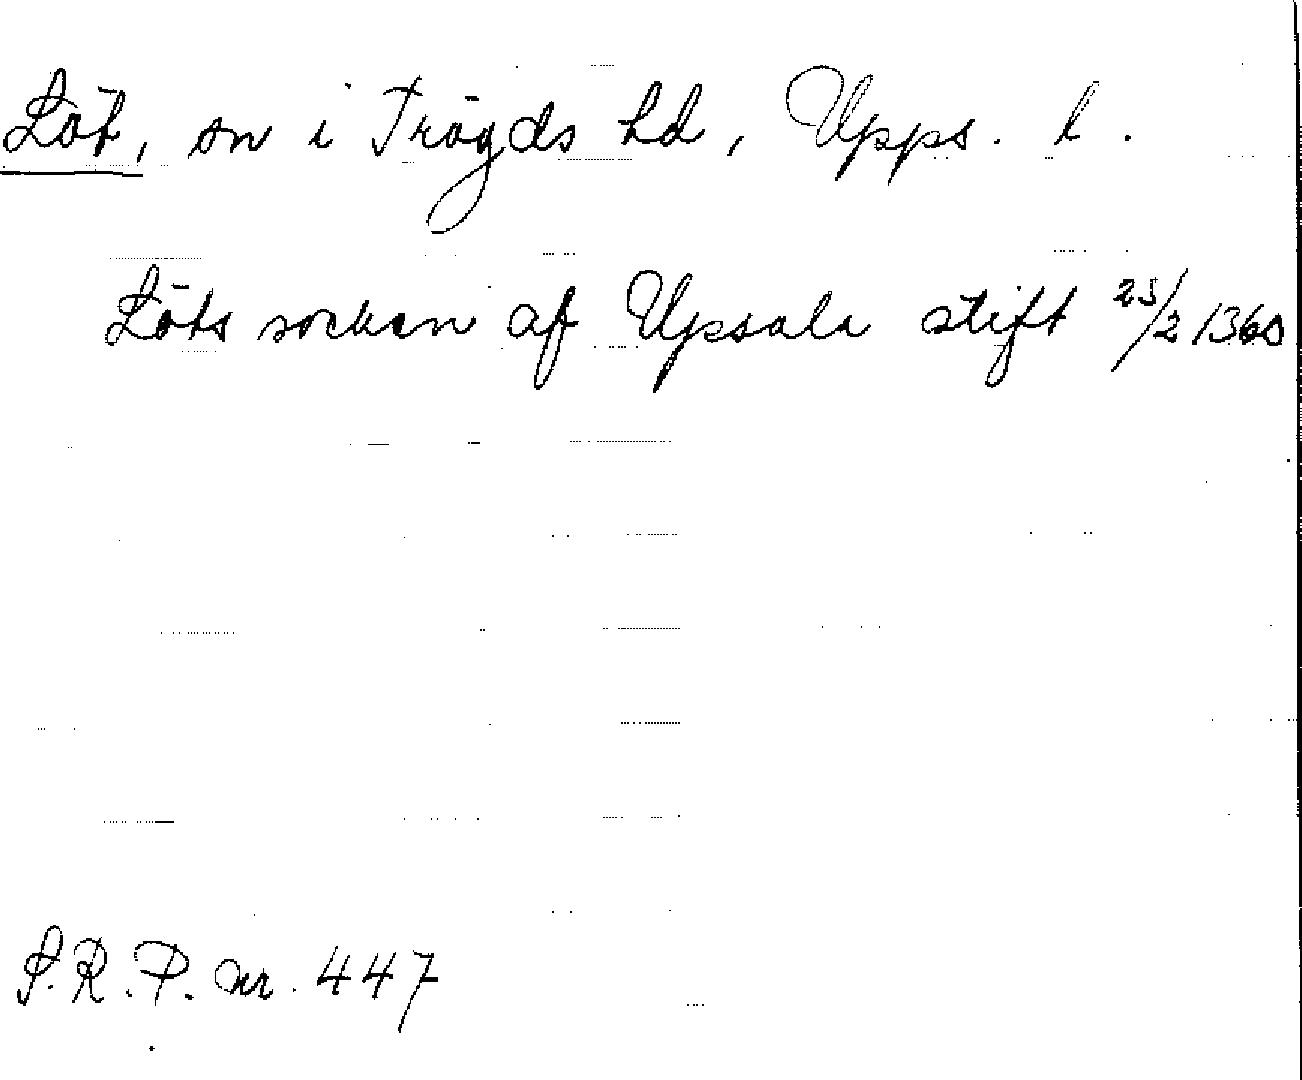 Löt, sn i Trögds hd, Upps. l.
Löts socken af Upsala stift 25/2 1360
S.R.P. nr. 447